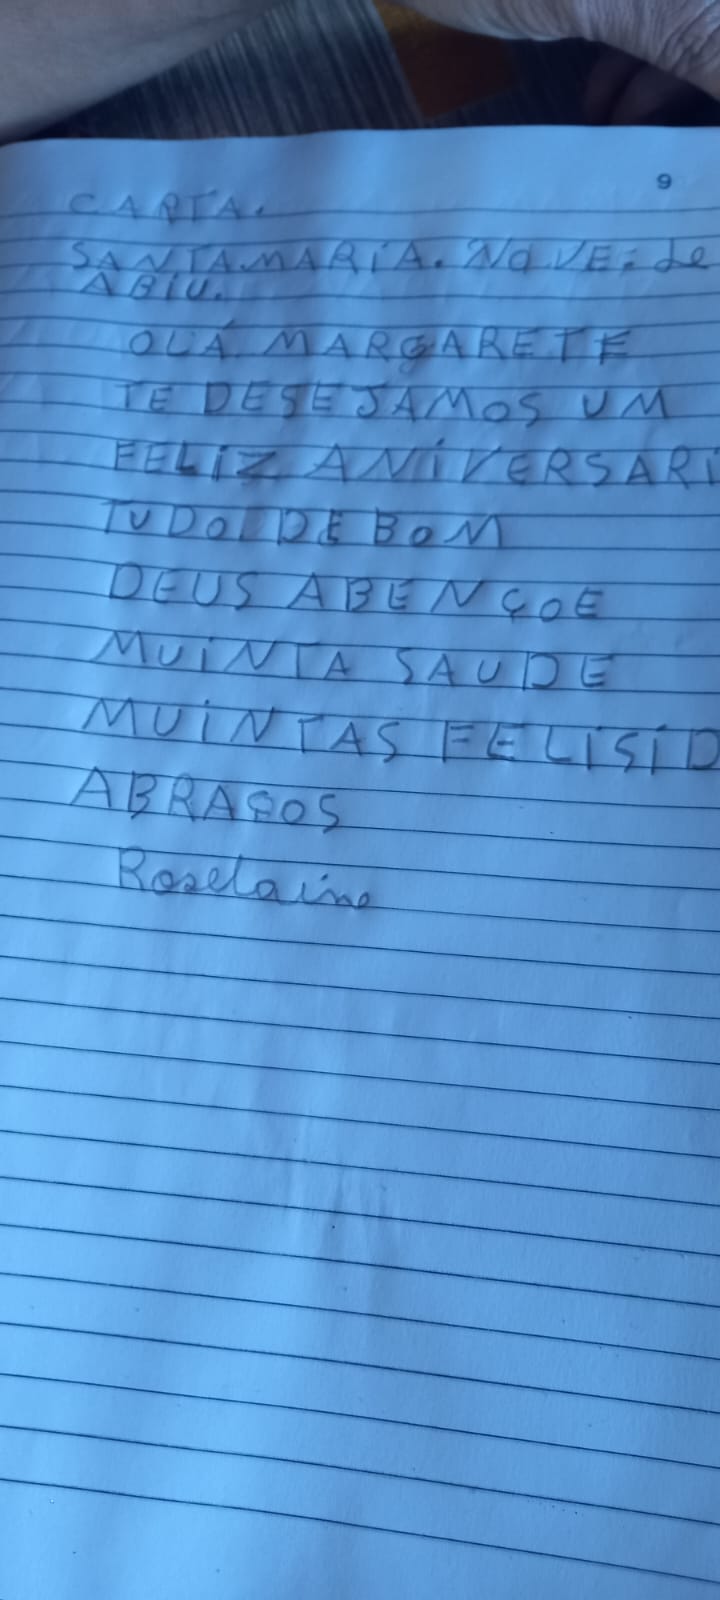 9
CARTA.
SANTAMARIA. NOVE: de
ABIU.
OLÁ MARGARETE
TE DESEJAMOS UM
FELIZ ANIVERSARI
TUDO DE BOM
DEUS ABENÇOE
MUINTA SAUDE
MUINTAS FELISID
ABRAÇOS
Roselaine